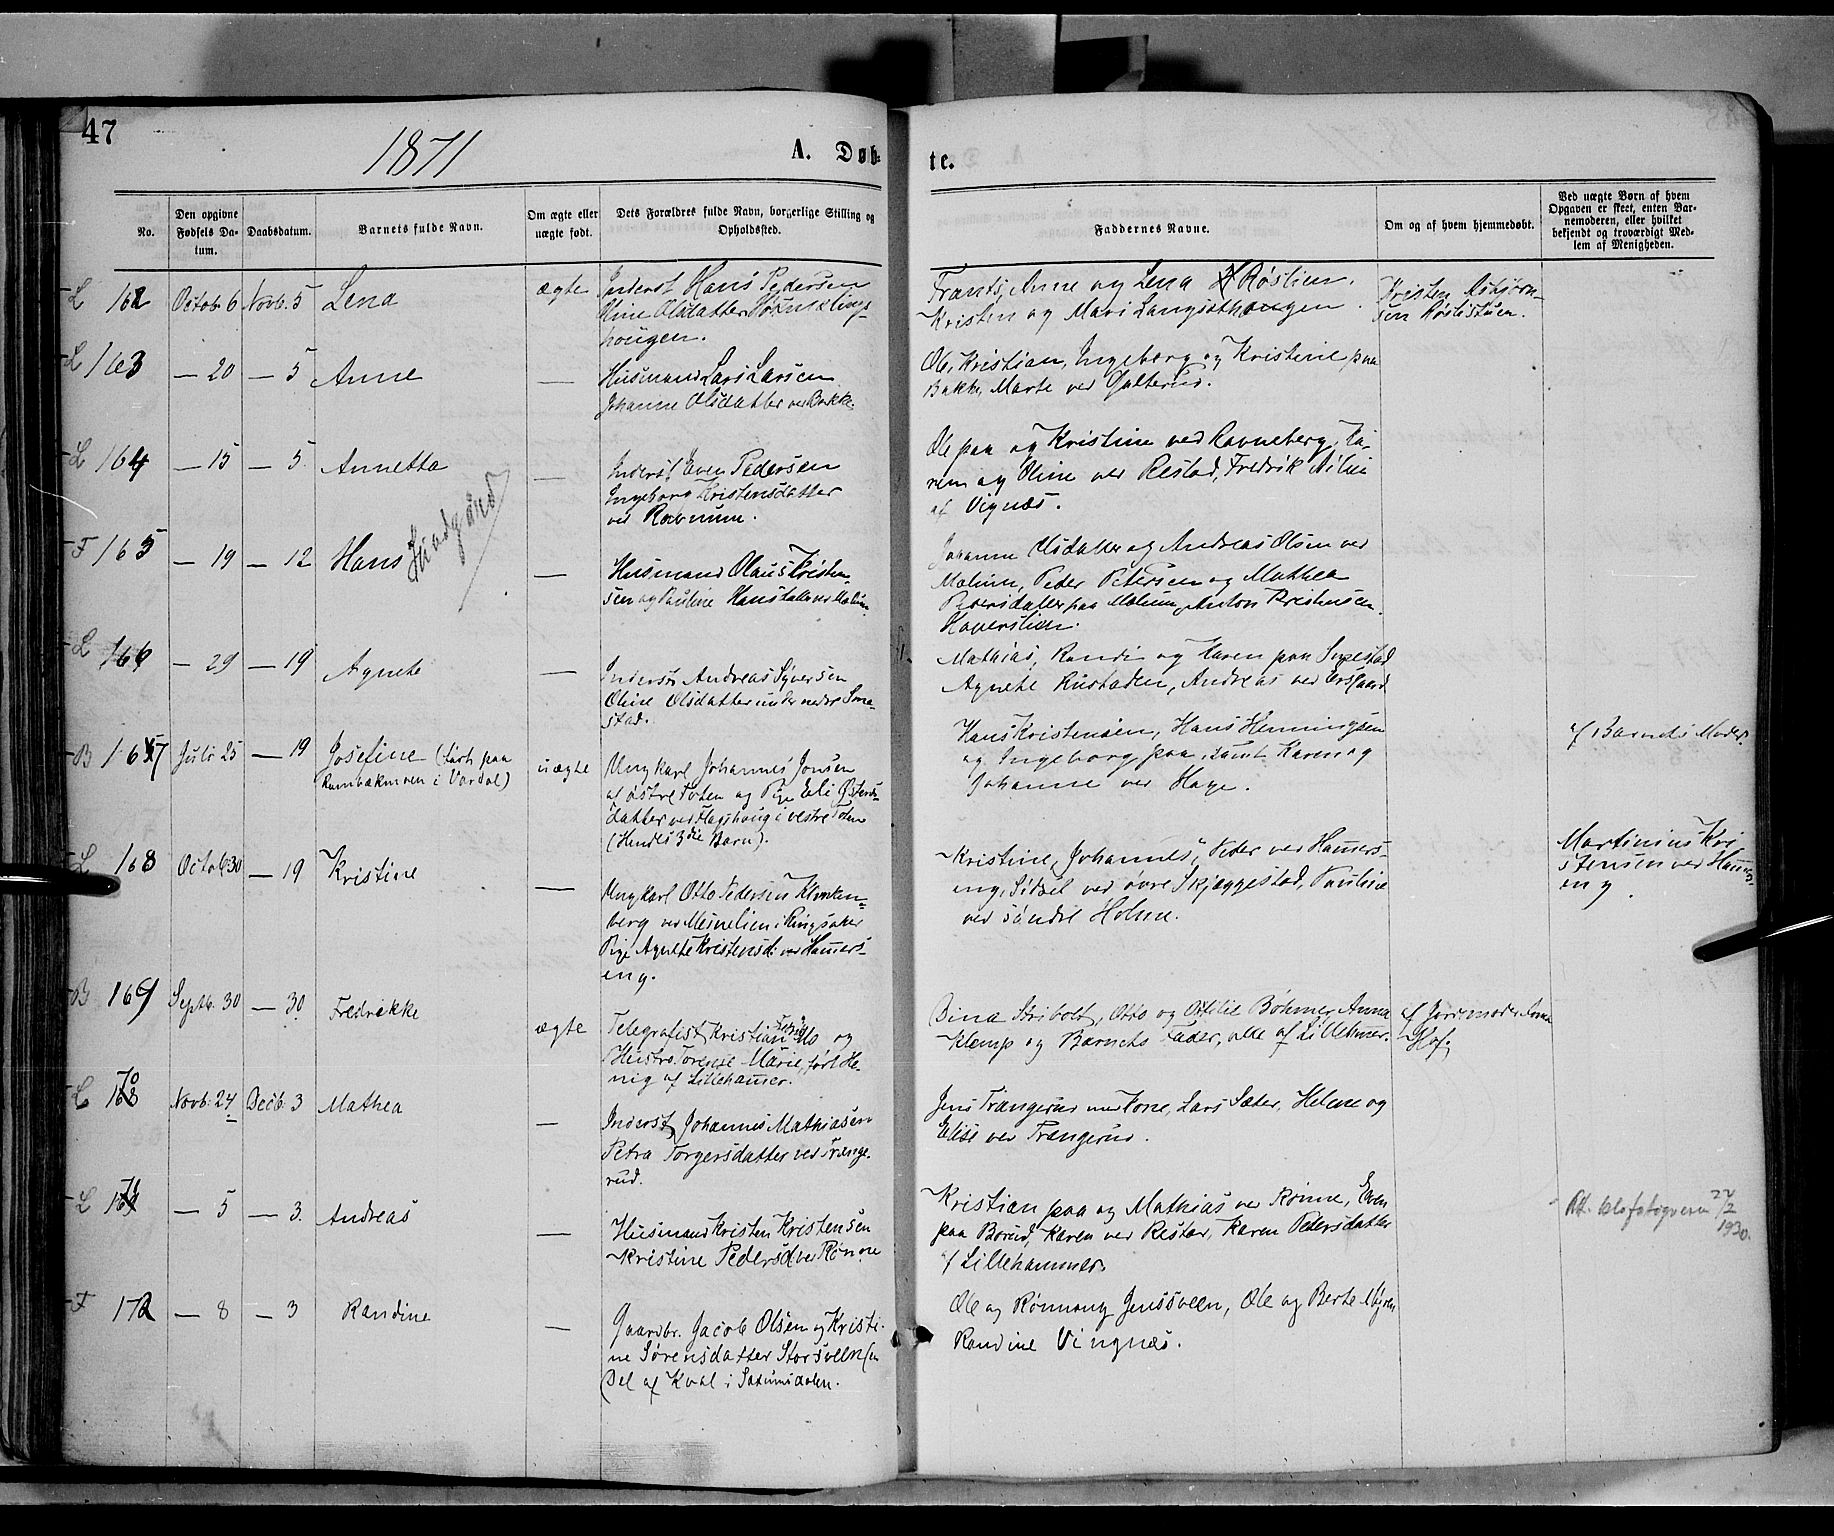 47
1871
A. Døb-
te.
No.
Den opgivne
Fødsels Da-
tum.
Daabsdatum.
Barnets fulde Navn.
Om ægte eller
uægte født.
Dets Forældres fulde Navn, borgerlige Stilling og
Opholdssted.
Faddernes Navne.
Om og af hvem hjemmedøbt.
Ved uægte Børn af hvem
Opgaven er skeet, enten Bar-
nemoderen, eller hvilket
bekjendt og troværdigt Med-
lem af Menigheden.
L 162 Octob. 6 Novb. 5 Lena ægte
Inderst Hans Pedersen
Oline Olsdatter
hougen.
Frants, Anne og Lena Røslien.
Kristen og Mari
Kristen
sen
L 163 — 20 — 5 Anne —
Husmand Lars Larsen
Johanne Olsdatter ved Bakke.
Ole, Kristian, Ingeborg og Kristine paa
Bakke, Marte ved
L 164 — 15 — 5 Annetta —
Inderst Even Pedersen
Ingeborg Kristensdatter
ved
Ole paa og Kristine ved Ravneberg, Ka-
ren og Oline ved Restad, Fredrik
af Vignæs.
F 165 — 19 — 12 Hans —
Husmand Olaus Kristen-
sen og Pauline Hansdatter ved Mælum
Johanne Olsdatter og Andreas Olsen ved
Mælum, Peder Petersen og Mathea
Pedersdatter paa Mælum, Anton Kristensen
L 166 — 29 — 19 Agnete —
Inderst Andreas Syversen
Oline Olsdatter under nedre
stad.
Mathias, Randi og Karen paa
Agnete Rustaden, Andreas ved
B 167 Juli 25 — 19 Josefine (født paa
i Vardal)
uægte
Ungkarl Johannes Jonsen
af østre Toten og Pige Eli
datter ved Flagshoug i vestre Toten
(Hendes 3die Barn).
Hans Kristensen, Hans Henningsen
og Ingeborg paa, samt Karen og
Johanne ved Hage.
af Barnets Moder.
L 168 Octob. 30 — 19 Kristine —
Ungkarl Otto Pedersen Klunken-
berg ved Mesnelien i Ringsaker
Pige Agnethe Kristensd. ved Hamers-
eng.
Kristine, Johannes, Peder ved Hamers-
eng, Sidsel ved øvre Skjæggestad, Pauline
ved søndre Holme.
Martinius Kri-
stensen ved Hamers-
eng.
B 169 Septb. 30 — 30 Fredrikke ægte
Telegrafist Kristian Mo og
Hustro Marie, født He-
nig af Lillehamer.
Dina Stribolt, Otto og Ottilie Böhmer, Anna
Klemp og Barnets Fader, alle af Lillehamer.
af Jordemoder Anna
Hof.
L 170 Novb. 24 Decb. 3 Mathea —
Inderst Johannes Mathiasen
Petra Torgersdatter ved Trænge-
rud.
Jens Trængerud med Kone, Lars Sæter, Helene og
Elise ved Trængerud.
L 171 — 5 — 3. Andreas —
Husmand Kristen Kristensen
Kristine Pedersd. ved Rønne
Kristian paa og Mathias ved Rønne, Even
paa Borud, Karen ved Restad, Karen Petersdatter
af Lillehammer.
22/2
1930.
F 172 — 8 — 3 Randine —
Gaardbr. Jacob Olsen og Kristi-
ne Sørensdatter Storsveen (en
Del af Kval i Saxumsdalen.
Ole og Rønnaug Jenssveen, Ole og Berte
Randine Vingnæs.